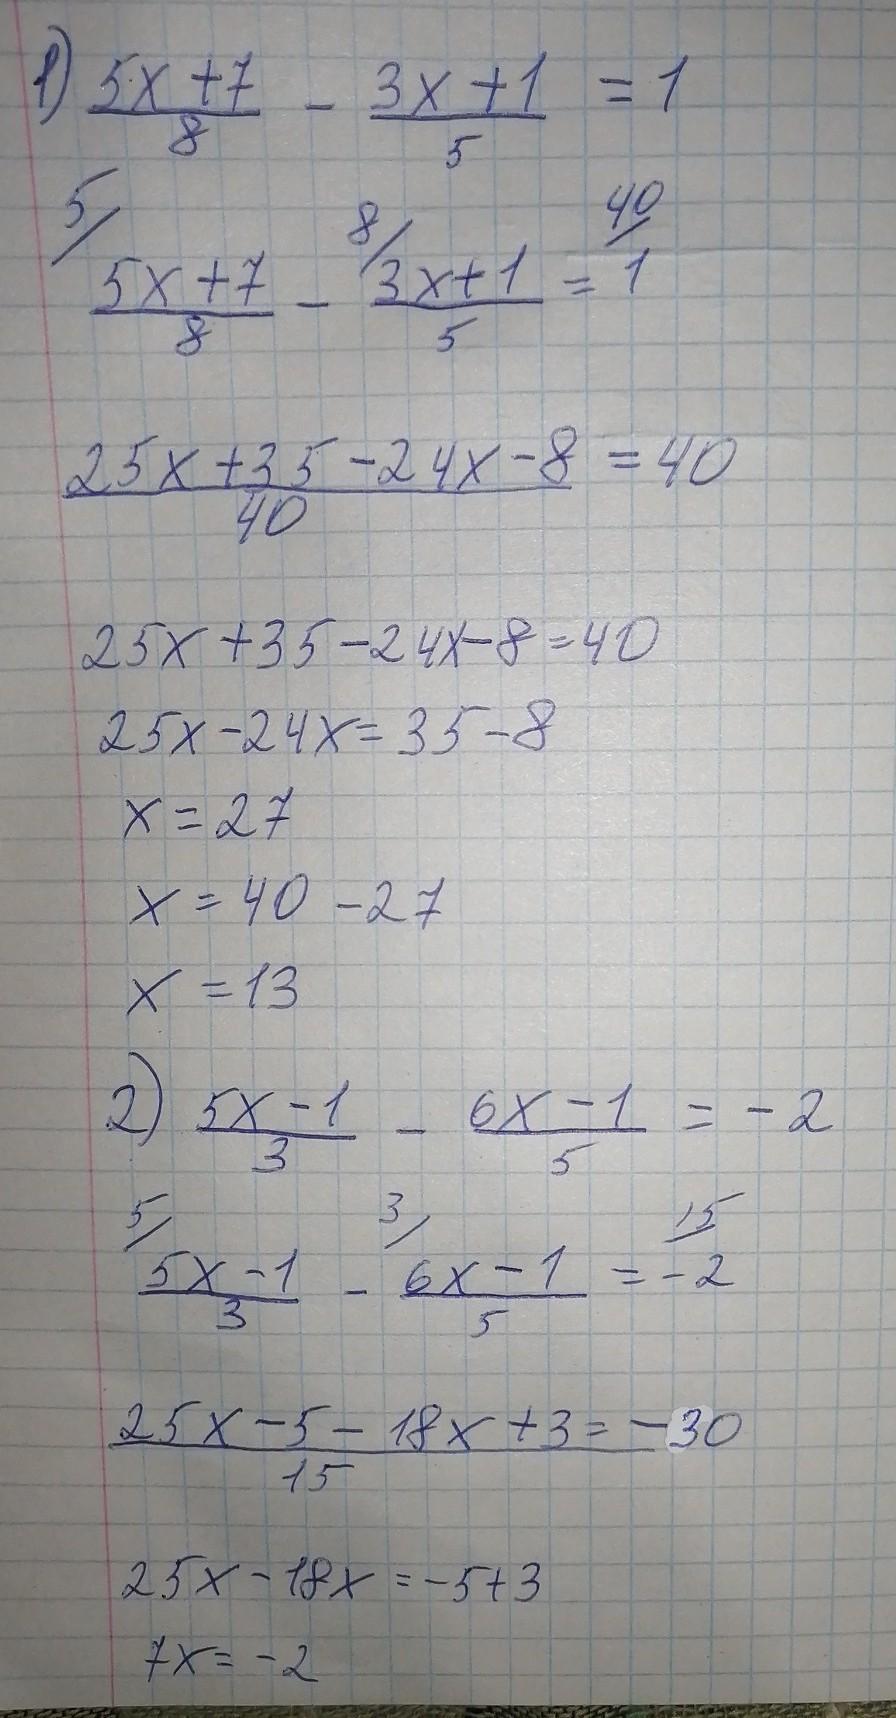 1) (5x+7)/8 - (3x+1)/5 = 1
5/ 8/ 40/
(5x+7)/8 - (3x+1)/5 = 1
(25x+35-24x-8)/40 = 40
25x+35-24x-8=40
25x-24x=35-8
x=27
x=40-27
x=13
2) (5x-1)/3 - (6x-1)/5 = -2
5/ 3/ 15/
(5x-1)/3 - (6x-1)/5 = -2
(25x-5-18x+3)/15 = -30
25x-18x=-5+3
7x=-2